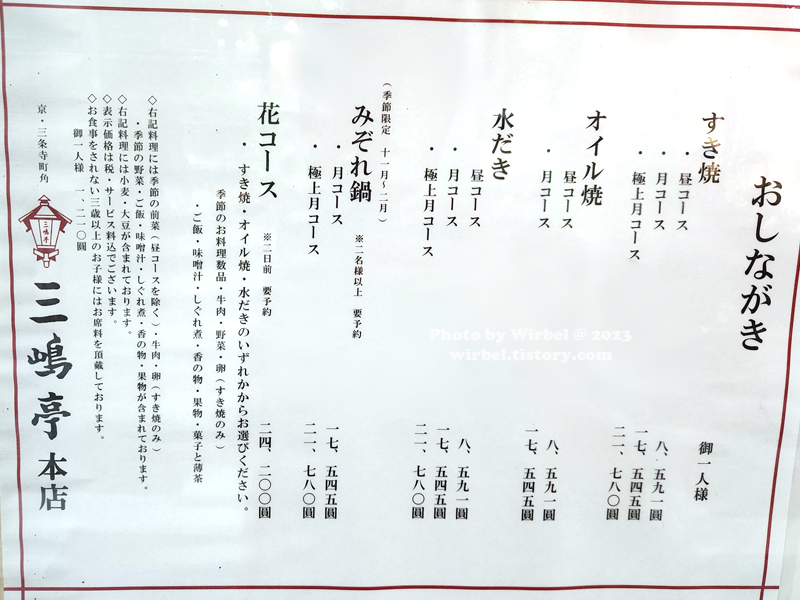 おしながき
御一人様
すき焼
・昼コース 八、五九一圓
・月コース 一七、五四五圓
・極上月コース 二一、七八〇圓
オイル焼
・昼コース 八、五九一圓
・月コース 一七、五四五圓
水だき
・昼コース 八、五九一圓
・月コース 一七、五四五圓
・極上月コース 二一、七八〇圓
(季節限定 十一月〜二月)
みぞれ鍋 ※二名様以上 要予約
・月コース 一七、五四五圓
・極上月コース 二一、七八〇圓
花コース ※二日前 要予約 二四、二〇〇圓
・すき焼・オイル焼・水だきのいずれかからお選びください。
季節のお料理数品・牛肉・野菜・卵(すき焼のみ)
・ご飯・味噌汁・しぐれ煮・香の物・果物・菓子と薄茶
◇右記料理には季節の前菜(昼コースを除く)・牛肉・卵(すき焼のみ)
・季節の野菜・ご飯・味噌汁・しぐれ煮・香の物・果物が含まれております。
◇右記料理には小麦・大豆が含まれております。
◇表示価格は税・サービス料込でございます。
◇お食事をされない三歳以上のお子様にはお席料を頂戴しております。
御一人様 一、二一〇圓
京・三条寺町角
三嶋亭
三嶋亭 本店
Photo by Wirbel @ 2023
wirbel.tistory.com